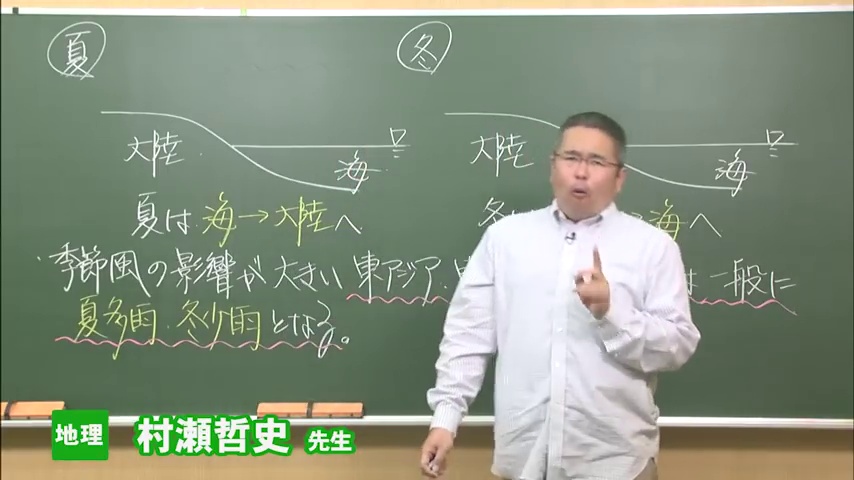 夏
冬
大陸 海
大陸 海
夏は 海→大陸へ
冬は 海へ
季節風の影響が大きい 東アジア・ は一般に
夏多雨・冬少雨となる。
地理 村瀬哲史 先生